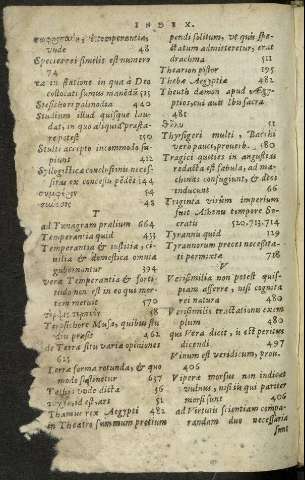 INDEX.
σωφροσύνη & temperantia,
vnde 48
Species rei similis est numero
74
ta in statione in qua à Deo
collocati sumus manendũ 515
Stesichori palinodia 440
Studium illud quisque lau-
dat, in quo aliquid præsta-
re potest 150
Stulti accepto incommodo sa-
piunt 412
Syllogistica conclusionis neces-
sitas ex concessu pēdēs 144
48
T
ad Tanagram prælium 664
Temperantia quid 431
Temperantia & iustitia, ci-
uilia & domestica omnia
gubernantur 394
vera Temperantia & forti-
tudo non est in eo qui mor-
tem metuit 570
58
Terpsichore Musa, quibus stu
diis præsit 462
de Terræ situ varia opiniones
625
Terræ forma rotunda, & quo
modo sustinetur 657
vnde dicta 56
id est, ars 51
Thamus rex Aegypti 482
in Theatro summum pretium
pendi solitum, vt quis spe-
ctatum admitteretur, erat
drachma 511
Thearion pistor 195
Thebæ Aegyptiæ 482
Theuth dæmon apud Aegy-
ptios, cui auis Ibis sacra
481
51
Thyrsigeri multi, Bacchi
verò pauci, prouerb. 180
Tragici quoties in angustias
redacta est fabula, ad ma-
chinas confugiunt, & deos
inducunt 66
Triginta virûm imperium
fuit Athenis tempore So-
cratis 520, 713, 714
Tyrannis quid 129
Tyrannorum preces necessita-
ti permixtæ 718
V
Verisimilia non potest quis-
piam afferre, nisi cognita
rei natura 480
Verisimilis tractationis exem
plum 480
qui Vera dicit, is est peritus
dicendi. 497
Vinum est veridicum, prou.
406
Viperæ morsus non indicat
vulnus, nisi iis qui pariter
morsi sunt 406
ad Virtutis scientiam compa-
randam duo necessaria
sunt